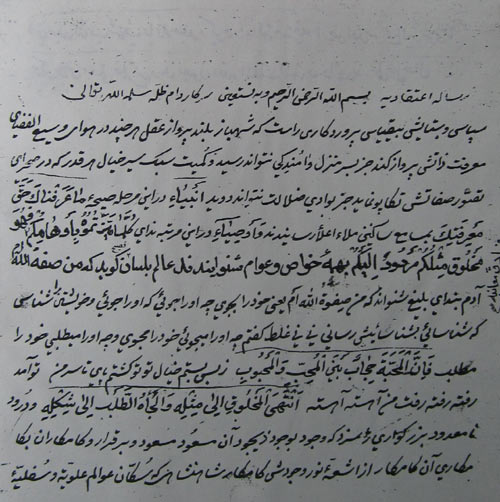 رساله اعتقادیه بسم الله الرحمن الرحیم و به نستعین سرکار دام ظله سلمه الله تعالی
سپاسی و ستایشی بیقیاسی پروردکاری راست که شهباز بلند پرواز عقل هرچند در هوای وسیع الفضای
معرفت ذاتش پرواز کند جز بسر منزل ذا نتواند رسید و کمیت سبک سیر خیال هر قدر که در صحرای
تصور صفاتش تکاپو نماید جز بوادی ضلالت نتواند دوید انبیاء در این مرحله صیحه ما عرفناک حق
معرفتک بسمع ساکنین ملاء اعلا رسانیدند و اوصیاء در این مرتبه ندای کلما میزتموه باوهامکم فهو
مخلوق مثلکم مردود الیکم بهمه خواص و عوام شنوانیدند قل عالم بلسان کوید که من صفوة الله ام
آدم بندای بلیغ شنواند که من صفوة الله ام یعنی خود را بجوی چه او را بجوئی که او را جوئی و خویشتن شناسی
که شناسائی بشناسایش رسانی نی نی غلط کفتم چه او را بجوئی خود را بجوی و چه او را بطلبی خود را
مطلب فان المحبة حجاب بین المحب و المحبوب پس ببستم خیال تو تو کشتم پای تا سر من تو آمد
رفته رفته رفت من آهسته آهسته انتهی المخلوق الی مثله و الجاه الطلب الی شکله و درود
نا معدود بزرکواری را سزد که وجود بوجود ذیجود آن مسعود و سعود برقرار و کامکاران بکا
مکاری آن کامکار از اشعه نور وجودش کامکار شاهنشاهی که سکان عوالم علویه و سفلیه